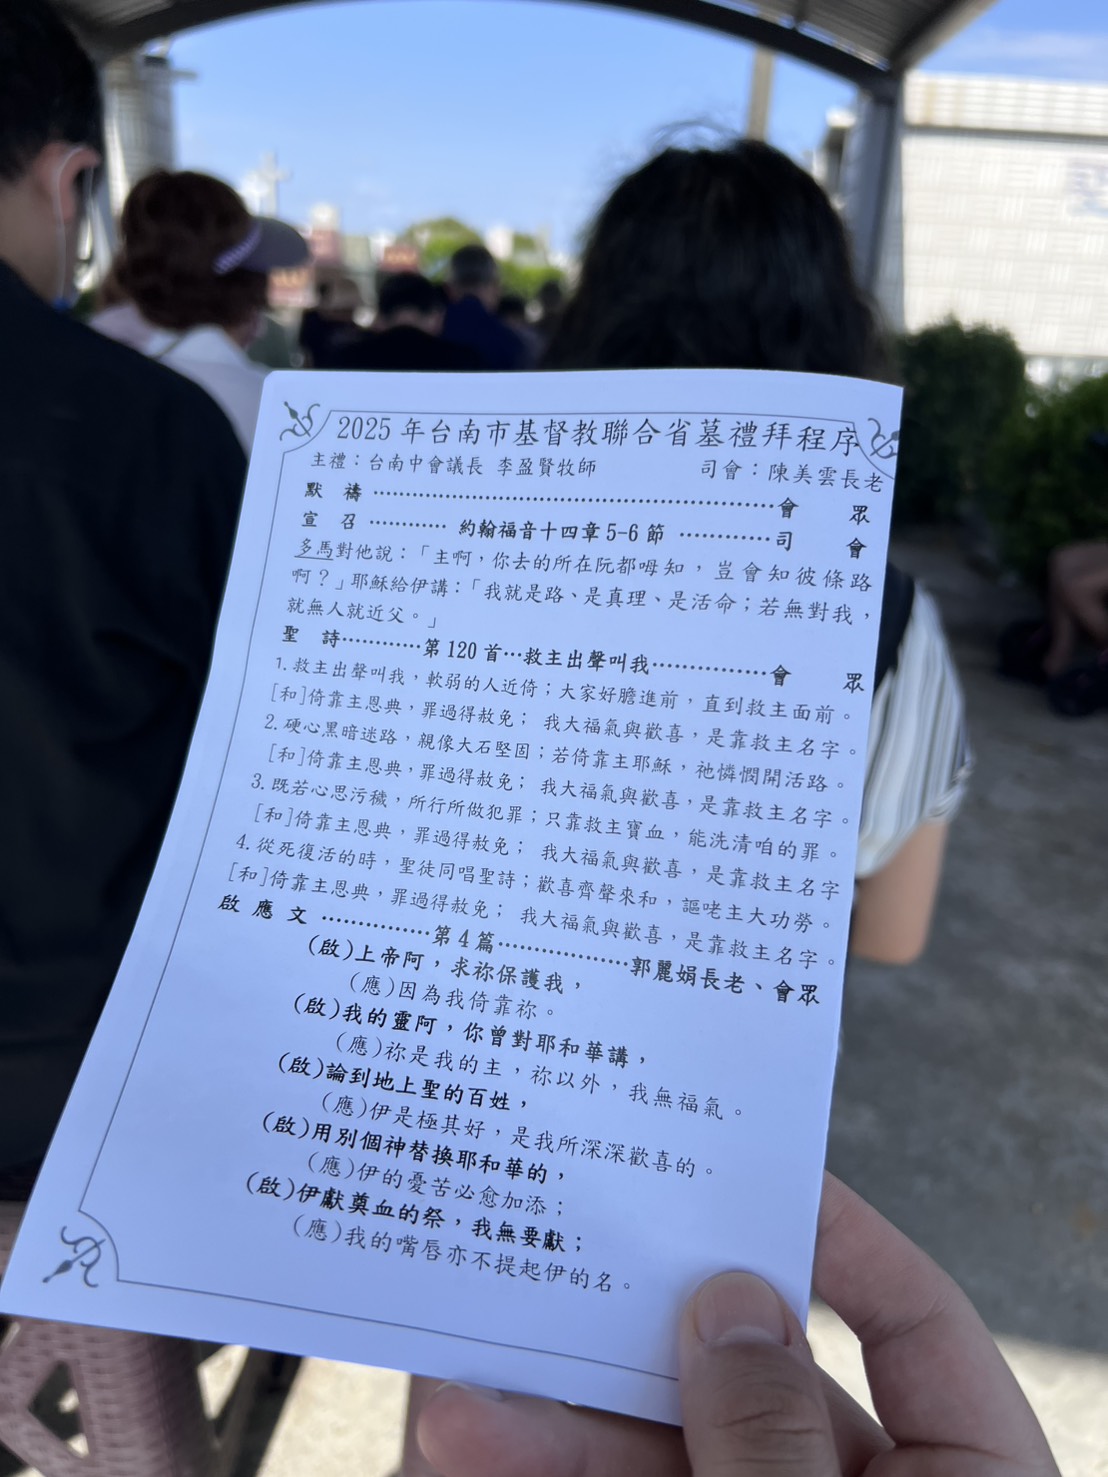 2025 年台南市基督教聯合省墓禮拜程序
主禮：台南中會議長 李盈賢牧師 司會：陳美雲長老
默 禱 ⋯⋯⋯⋯⋯⋯⋯⋯⋯⋯⋯⋯⋯⋯⋯⋯ 會 眾
宣 召 ⋯⋯⋯⋯ 約翰福音十四章 5-6 節 ⋯⋯⋯⋯ 司 會
多馬對他說：「主啊，你去的所在阮都呣知，豈會知彼條路
啊？」耶穌給伊講：「我就是路、是真理、是活命；若無對我，
就無人就近父。」
聖 詩⋯⋯⋯⋯第 120 首⋯救主出聲叫我⋯⋯⋯⋯⋯會 眾
1. 救主出聲叫我，軟弱的人近倚；大家好膽進前，直到救主面前。
[和]倚靠主恩典，罪過得赦免； 我大福氣與歡喜，是靠救主名字。
2. 硬心黑暗迷路，親像大石堅固；若倚靠主耶穌，祂憐憫開活路。
[和]倚靠主恩典，罪過得赦免； 我大福氣與歡喜，是靠救主名字。
3. 既若心思污穢，所行所做犯罪；只靠救主寶血，能洗清咱的罪。
[和]倚靠主恩典，罪過得赦免； 我大福氣與歡喜，是靠救主名字
4. 從死復活的時，聖徒同唱聖詩；歡喜齊聲來和，謳咾主大功勞。
[和]倚靠主恩典，罪過得赦免； 我大福氣與歡喜，是靠救主名字。
啟 應 文 ⋯⋯⋯⋯⋯第 4 篇⋯⋯⋯⋯⋯⋯郭麗娟長老、會眾
(啟)上帝阿，求祢保護我，
(應)因為我倚靠祢。
(啟)我的靈阿，你曾對耶和華講，
(應)祢是我的主，祢以外，我無福氣。
(啟)論到地上聖的百姓，
(應)伊是極其好，是我所深深歡喜的。
(啟)用別個神替換耶和華的，
(應)伊的憂苦必愈加添；
(啟)伊獻奠血的祭，我無要獻；
(應)我的嘴唇亦不提起伊的名。